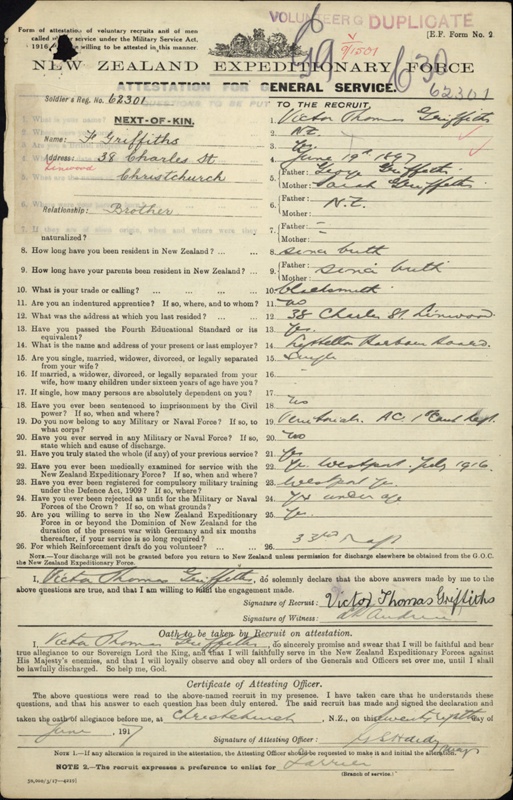 Form of attestation of voluntary recruits and of men
called for service under the Military Service Act,
1916, willing to be attested in this manner.
VOLUNTEER G DUPLICATE
[E.F. Form No. 2
9/1501
NEW ZEALAND EXPEDITIONARY FORCE
ATTESTATION FOR GENERAL SERVICE.
62301
Soldier's Reg. No. 62301
QUESTIONS TO BE PUT TO THE RECRUIT.
NEXT-OF-KIN.
Name: Griffiths
Address: 38 Charles St.
Linwood
Christchurch
Relationship: Brother
1. Victor Thomas Griffiths
2. N.Z.
3. Yes
4. June 19th 1897
5. Father: George Griffiths
Mother: Sarah Griffiths
6. N.Z.
7. Father: -
naturalized? Mother: -
8. How long have you been resident in New Zealand? ... 8. since birth
9. How long have your parents been resident in New Zealand? 9. Father: since birth
Mother:
10. What is your trade or calling? 10. blacksmith
11. Are you an indentured apprentice? If so, where, and to whom? 11. no
12. What was the address at which you last resided? 12. 38 Charles St. Linwood
13. Have you passed the Fourth Educational Standard or its
equivalent? 13. Yes.
14. What is the name and address of your present or last employer? 14. Lyttelton Harbour Board.
15. Are you single, married, widower, divorced, or legally separated
from your wife? 15. Single
16. If married, a widower, divorced, or legally separated from your
wife, how many children under sixteen years of age have you? 16. -
17. If single, how many persons are absolutely dependent on you? 17.
18. Have you ever been sentenced to imprisonment by the Civil
power? If so, when and where? 18. no
19. Do you now belong to any Military or Naval Force? If so, to
what corps? 19.
20. Have you ever served in any Military or Naval Force? If so,
state which and cause of discharge. 20. no
21. Have you truly stated the whole (if any) of your previous service? 21. Yes
22. Have you ever been medically examined for service with the
New Zealand Expeditionary Force? If so, when and where? 22. Yes. Westport. July 1916.
23. Have you ever been registered for compulsory military training
under the Defence Act, 1909? If so, where? 23. Westport Yes.
24. Have you ever been rejected as unfit for the Military or Naval
Forces of the Crown? If so, on what grounds? 24. Yes under age
25. Are you willing to serve in the New Zealand Expeditionary
Force in or beyond the Dominion of New Zealand for the
duration of the present war with Germany and six months
thereafter, if your service is so long required? 25. Yes.
26. For which Reinforcement draft do you volunteer? 26. 33rd
NOTE.—Your discharge will not be granted before you return to New Zealand unless permission for discharge elsewhere be obtained from the G.O.C.
the New Zealand Expeditionary Force.
I, Victor Thomas Griffiths, do solemnly declare that the above answers made by me to the
above questions are true, and that I am willing to fulfil the engagement made.
Signature of Recruit: Victor Thomas Griffiths
Signature of Witness:
Oath to be taken by Recruit on attestation.
I, Victor Thomas Griffiths, do sincerely promise and swear that I will be faithful and bear
true allegiance to our Sovereign Lord the King, and that I will faithfully serve in the New Zealand Expeditionary Forces against
His Majesty's enemies, and that I will loyally observe and obey all orders of the Generals and Officers set over me, until I shall
be lawfully discharged. So help me, God.
Certificate of Attesting Officer.
The above questions were read to the above-named recruit in my presence. I have taken care that he understands the
questions, and that his answer to each question has been duly entered. The said recruit has made and signed the declaration and
taken the oath of allegiance before me, at Christchurch, N.Z., on this day of
June, 1917
Signature of Attesting Officer:
NOTE 1.—If any alteration is required in the attestation, the Attesting Officer should be requested to make it and initial the alteration.
NOTE 2.—The recruit expresses a preference to enlist for Farrier
(Branch of service.)